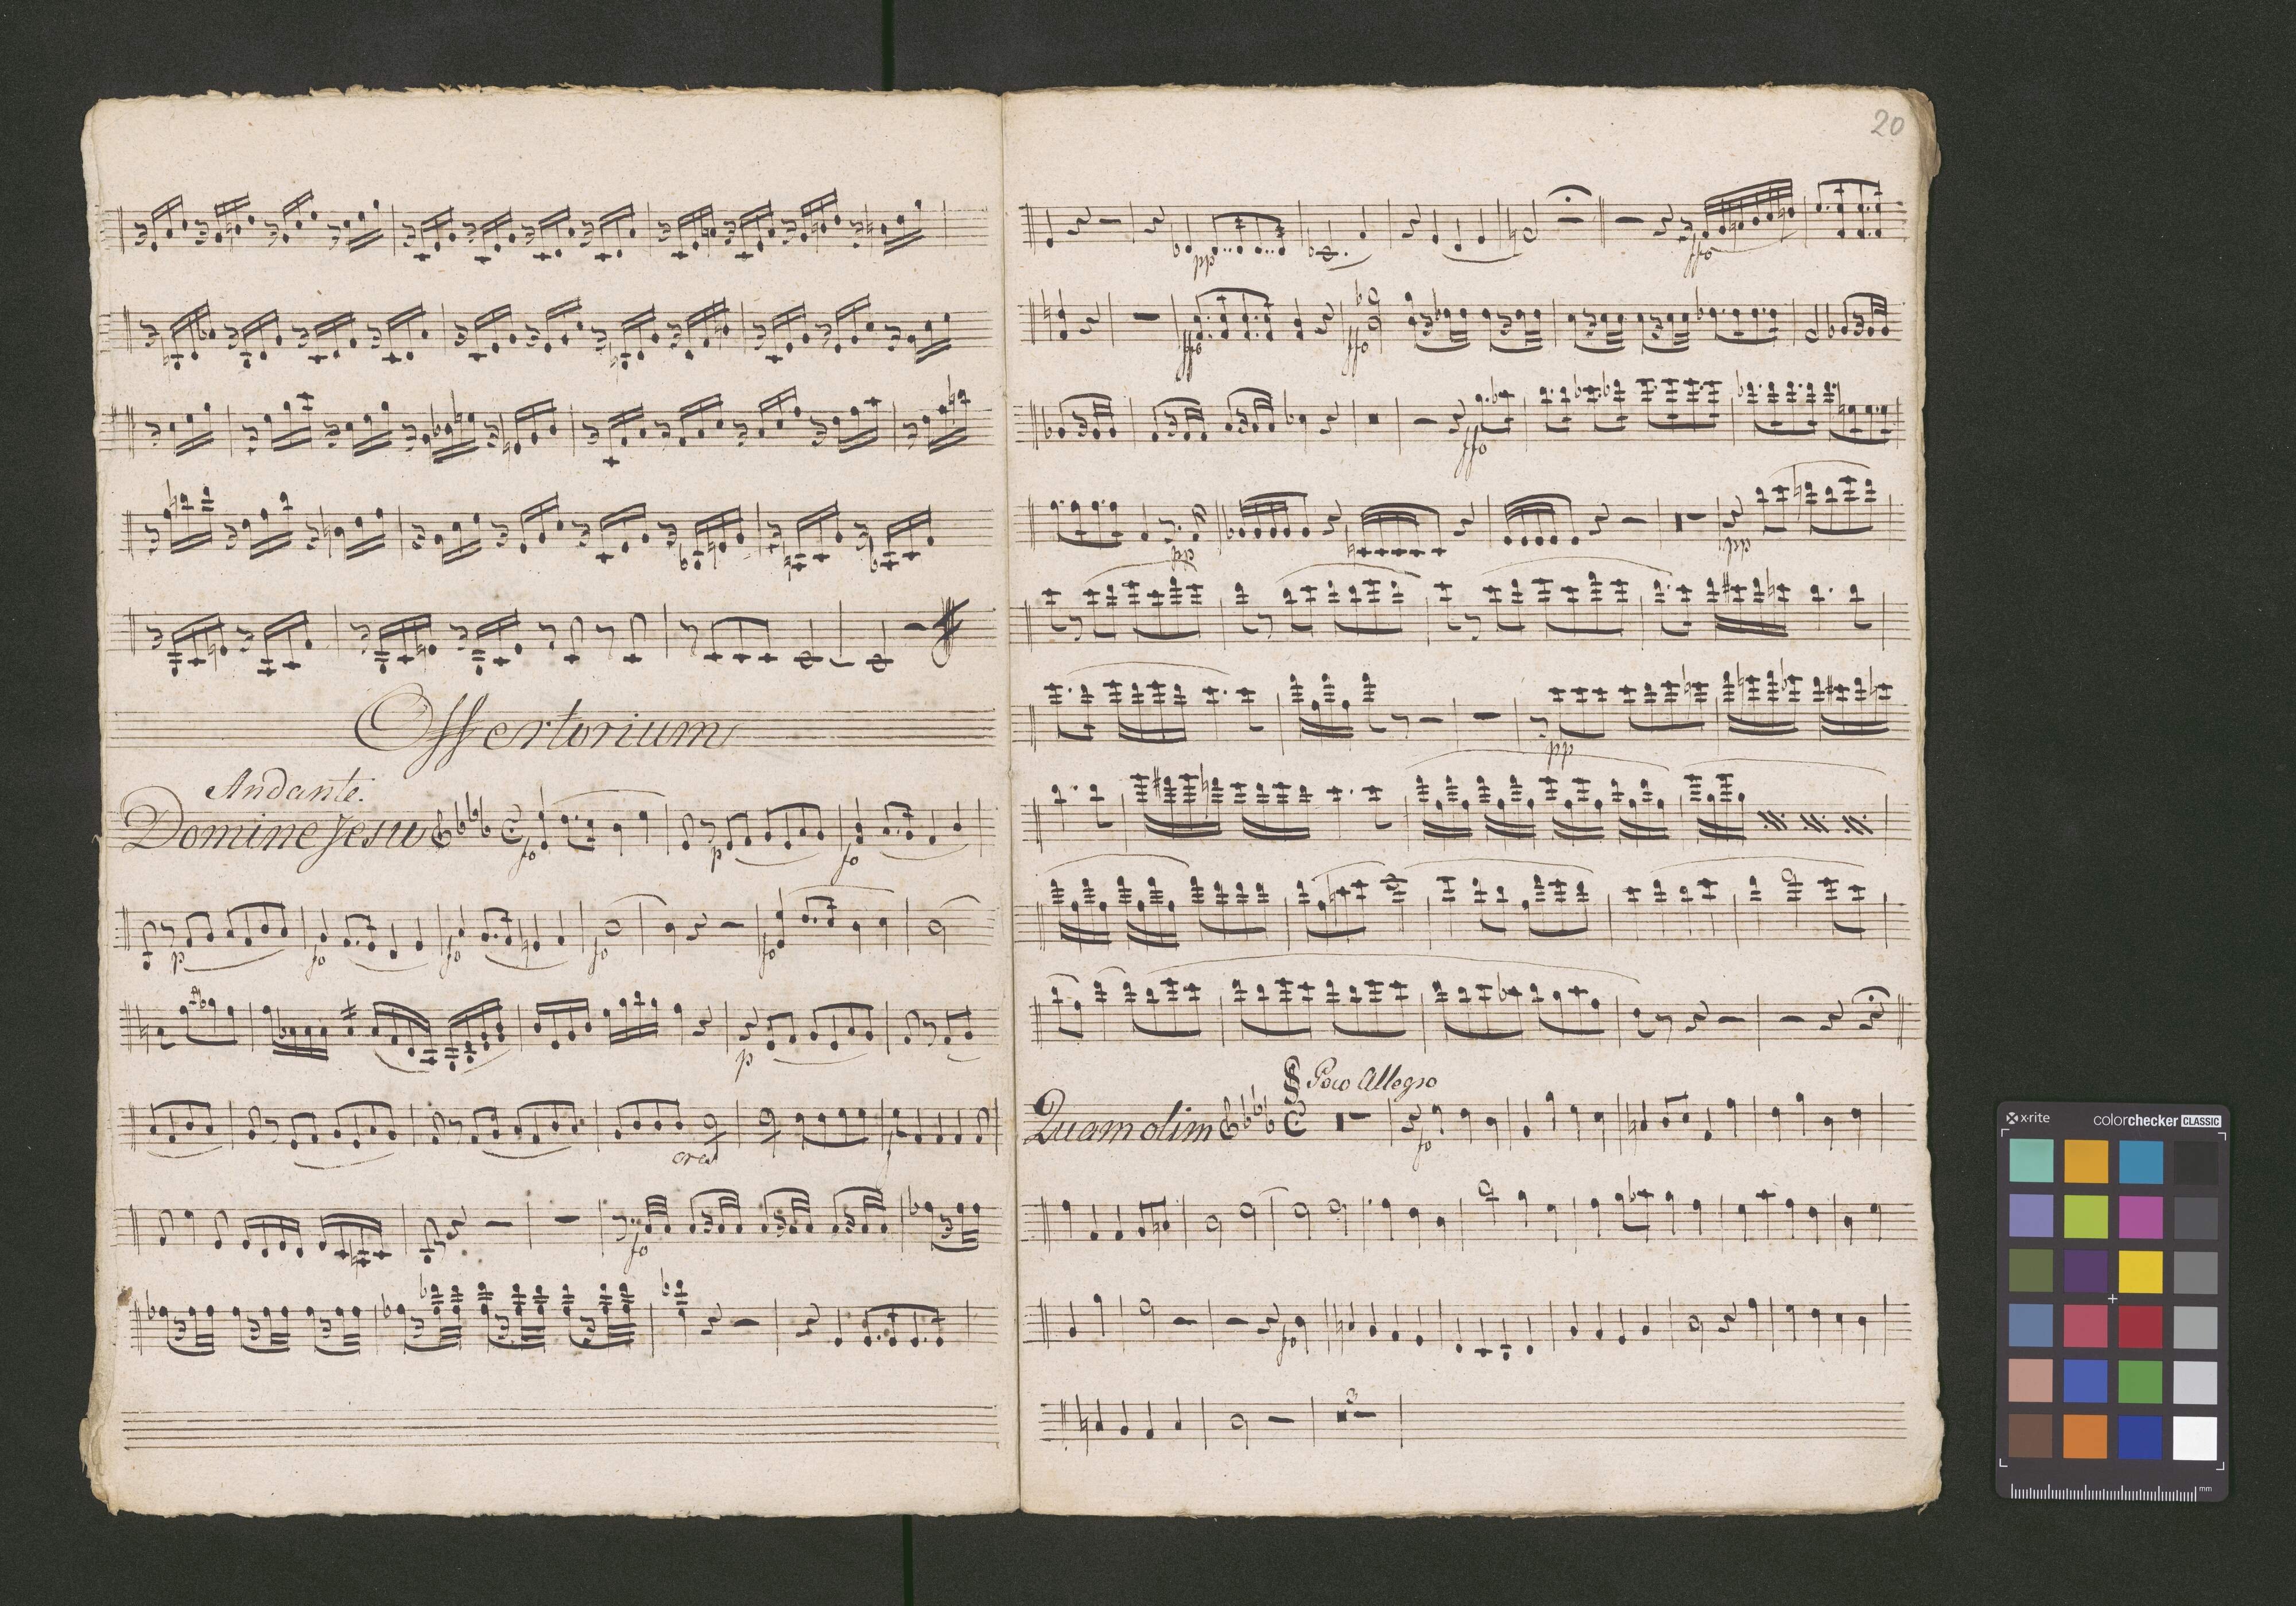 Offertorium
Andante.
Domine Jesu
fo
p
fo
p
fo
fo
fo
fo
p
cres
f
fo
20
pp
ffo
ffo
ffo
ffo
pp
pp
pp
Poco Allegro
Quam olim
fo
fo
3
x·rite
colorchecker CLASSIC
mm